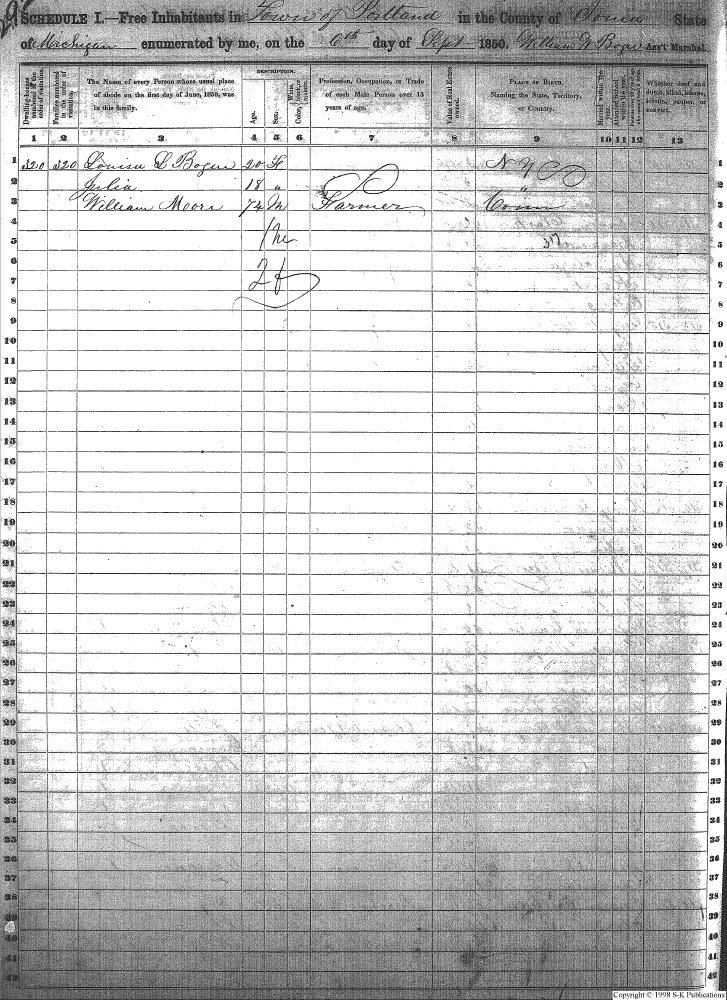 SCHEDULE I.—Free Inhabitants in Town of Portland in the County of Ionia State
of Michigan enumerated by me, on the 6th day of Sept 1850. William W Bogue Ass't Marshal.
DESCRIPTION.
Dwelling-houses numbered in the order of visitation.
Families numbered in the order of visitation.
The Name of every Person whose usual place of abode on the first day of June, 1850, was in this family.
Age.
Sex.
Color, White, black or mulatto.
Profession, Occupation, or Trade of each Male Person over 15 years of age.
Value of Real Estate owned.
PLACE OF BIRTH, Naming the State, Territory, or Country.
Married within the year.
Whether deaf and dumb, blind, insane, idiotic, pauper, or convict.
1 2 3 4 5 6 7 8 9 10 11 12 13
1 320 320 Louisa L Bogue 20 F N Y 1
2 Julia 18 " " 2
3 William Moore 74 M Farmer Conn 3
4 4
5 1 m 5
6 6
7 2 f 7
8 8
9 9
10 10
11 11
12 12
13 13
14 14
15 15
16 16
17 17
18 18
19 19
20 20
21 21
22 22
23 23
24 24
25 25
26 26
27 27
28 28
29 29
30 30
31 31
32 32
33 33
34 34
35 35
36 36
37 37
38 38
39 39
40 40
41 41
42 42
Copyright © 1998 S-K Publications